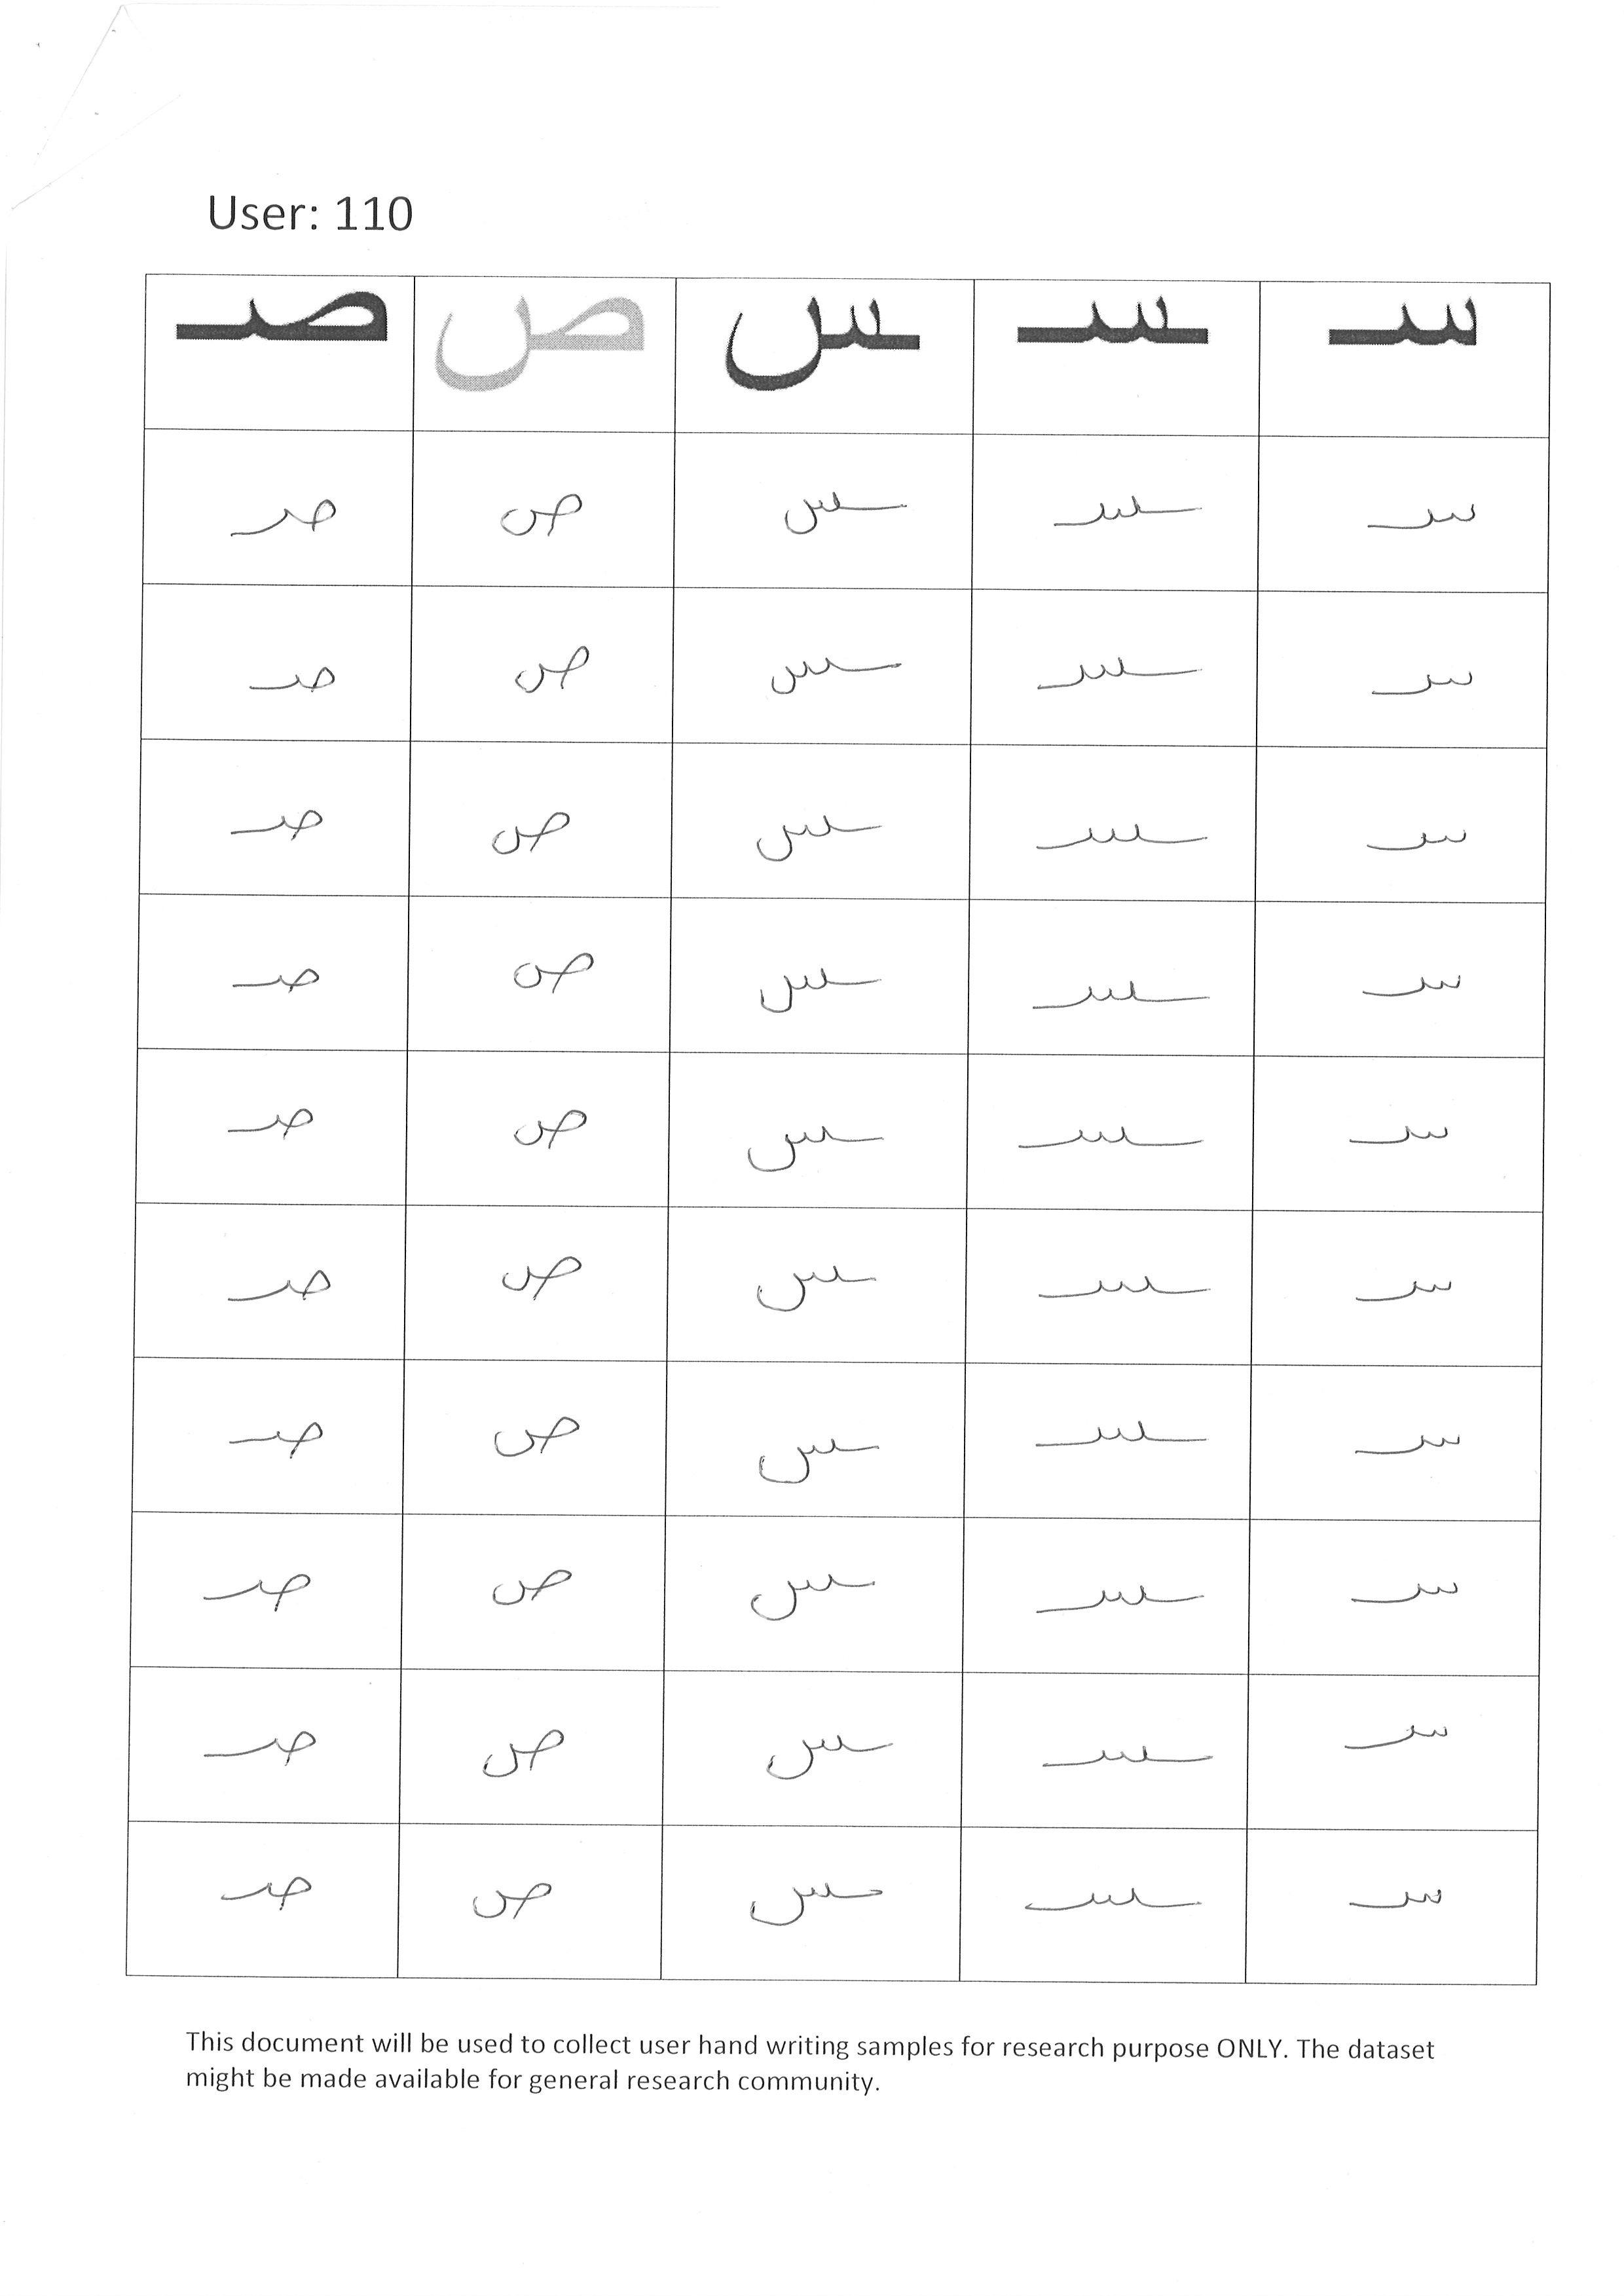 User: 110
سـ ـسـ ـس ص صـ
سـ ـسـ ـس ص صـ
سـ ـسـ ـس ص صـ
سـ ـسـ ـس ص صـ
سـ ـسـ ـس ص صـ
سـ ـسـ ـس ص صـ
سـ ـسـ ـس ص صـ
سـ ـسـ ـس ص صـ
سـ ـسـ ـس ص صـ
سـ ـسـ ـس ص صـ
سـ ـسـ ـس ص صـ
This document will be used to collect user hand writing samples for research purpose ONLY. The dataset
might be made available for general research community.